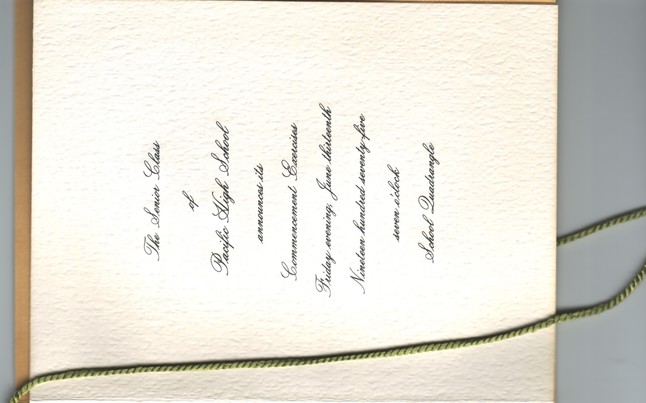 The Senior Class
of
Pacific High School
announces its
Commencement Exercises
Friday evening, June thirteenth
Nineteen hundred seventy-five
seven o'clock
School Quadrangle